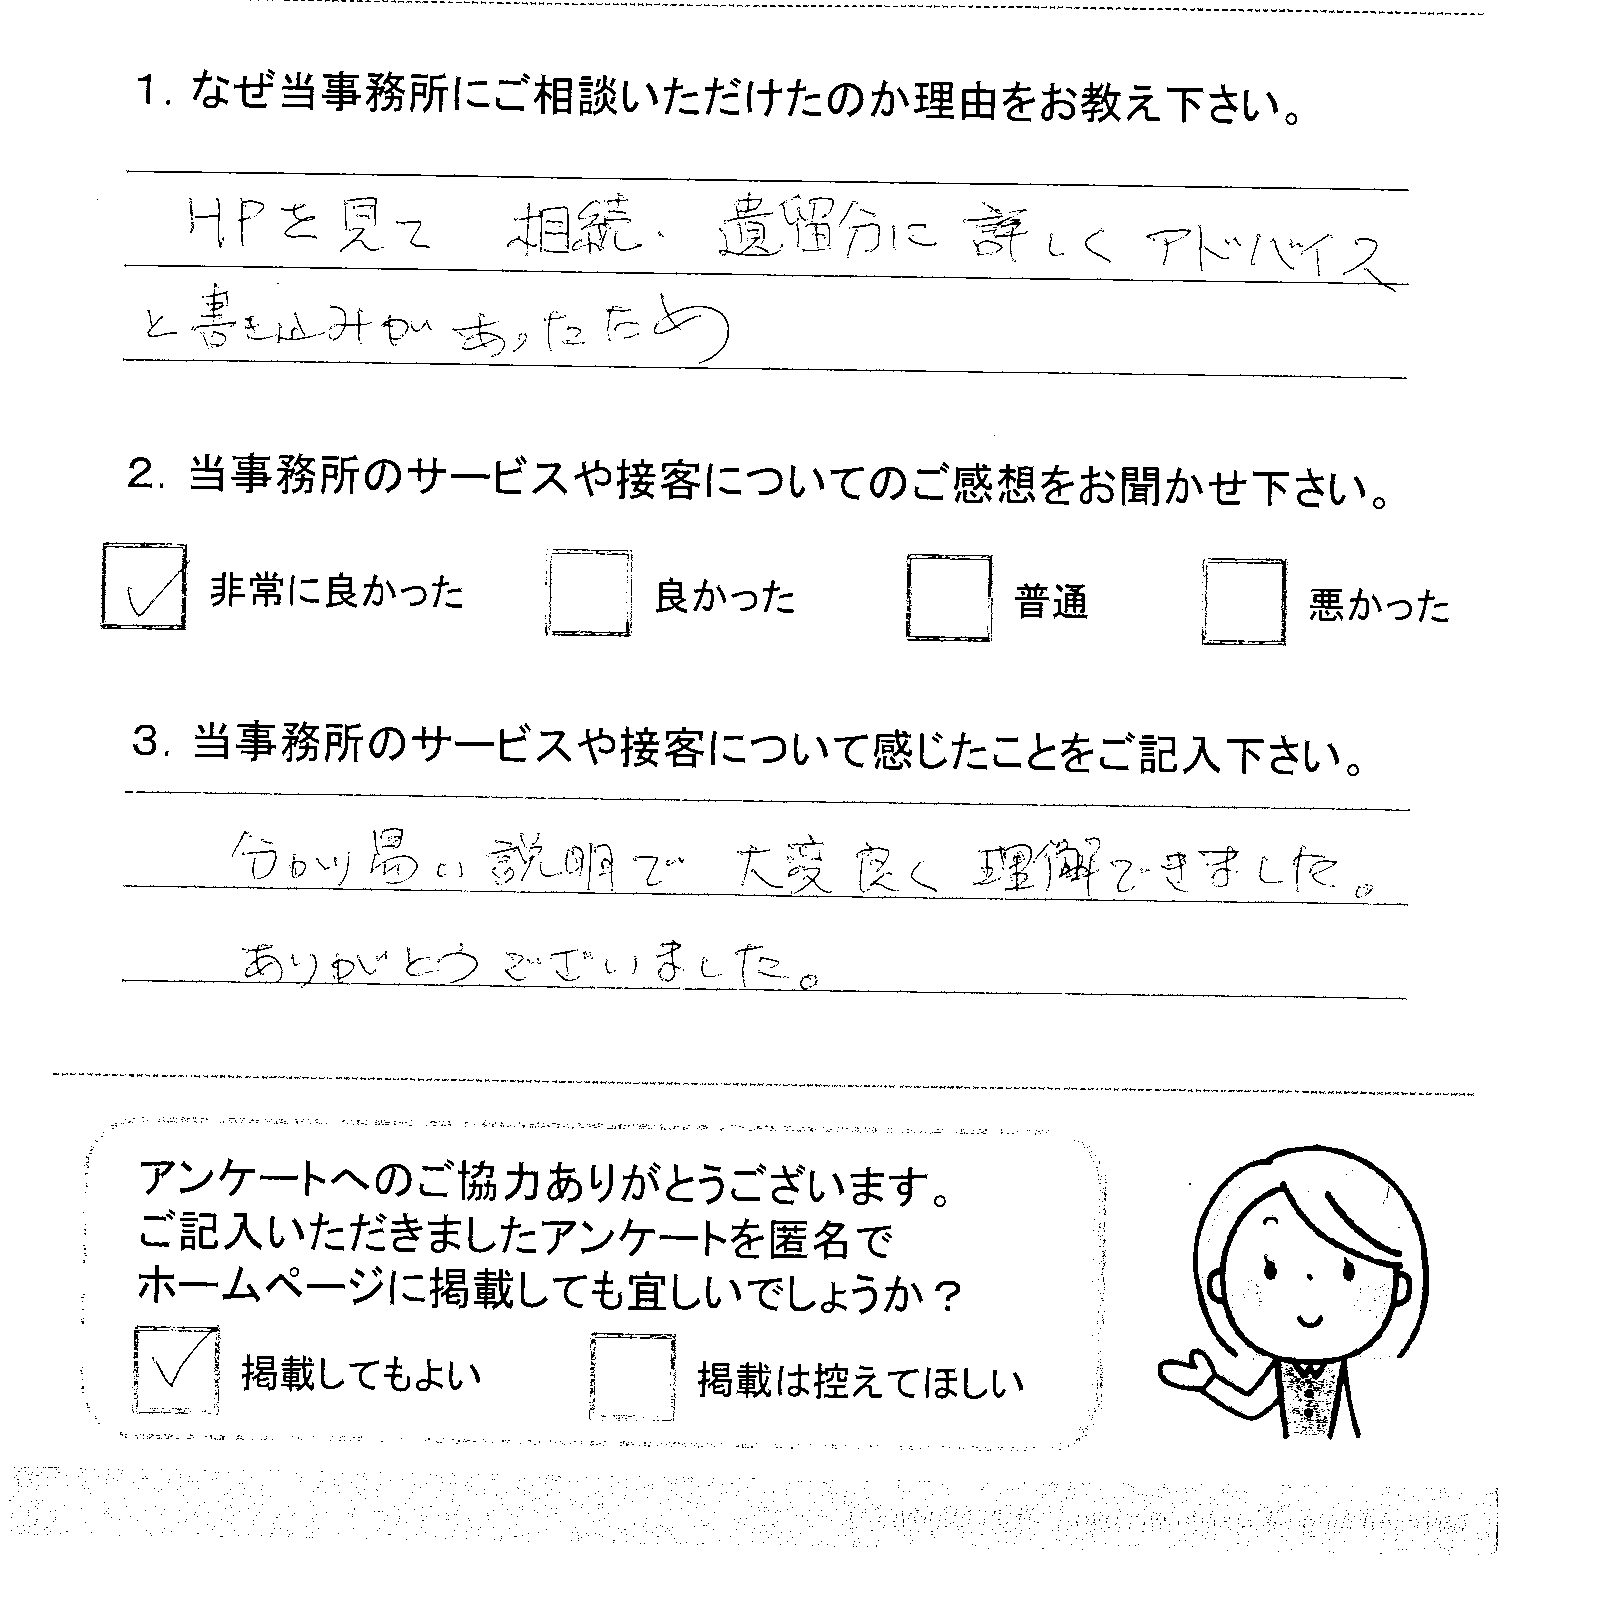 1. なぜ当事務所にご相談いただけたのか理由をお教え下さい。
H.Pを見て 相続・遺留分に詳しくアドバイス
と書き込みがあったため
2. 当事務所のサービスや接客についてのご感想をお聞かせ下さい。
非常に良かった 良かった 普通 悪かった
3. 当事務所のサービスや接客について感じたことをご記入下さい。
分かり易い説明で 大変良く理解できました。
ありがとうございました。
アンケートへのご協力ありがとうございます。
ご記入いただきましたアンケートを匿名で
ホームページに掲載しても宜しいでしょうか？
掲載してもよい 掲載は控えてほしい